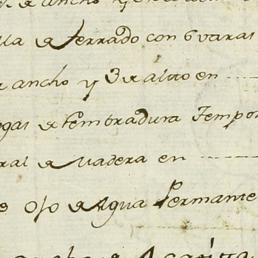 de ancho y
lla de terrado con 6 varas
ancho y 3 de alto en
gas de sembradura Tempo
ral de Madera en
e Ojo de Agua Permane